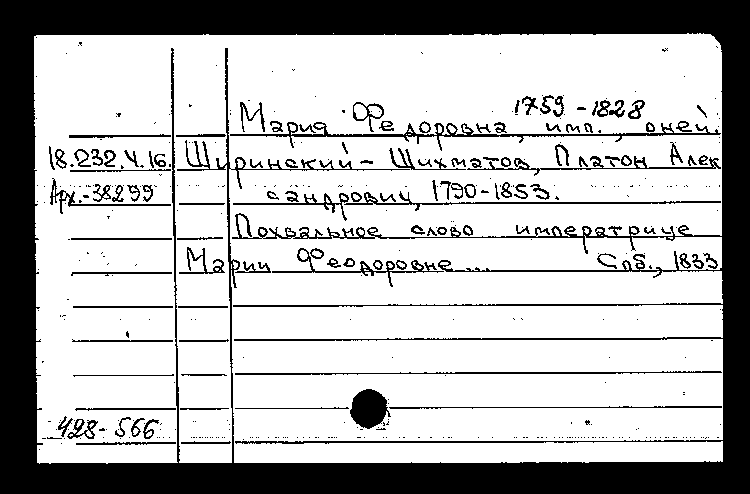 1759-1828
Мария Федоровна, имп., о ней.
18.232.4.16. Ширинский-Шихматов, Платон Алек
Арх.-38299 сандрович, 1790-1853.
Похвальное слово императрице
Марии Феодоровне... Спб., 1833.
428-566